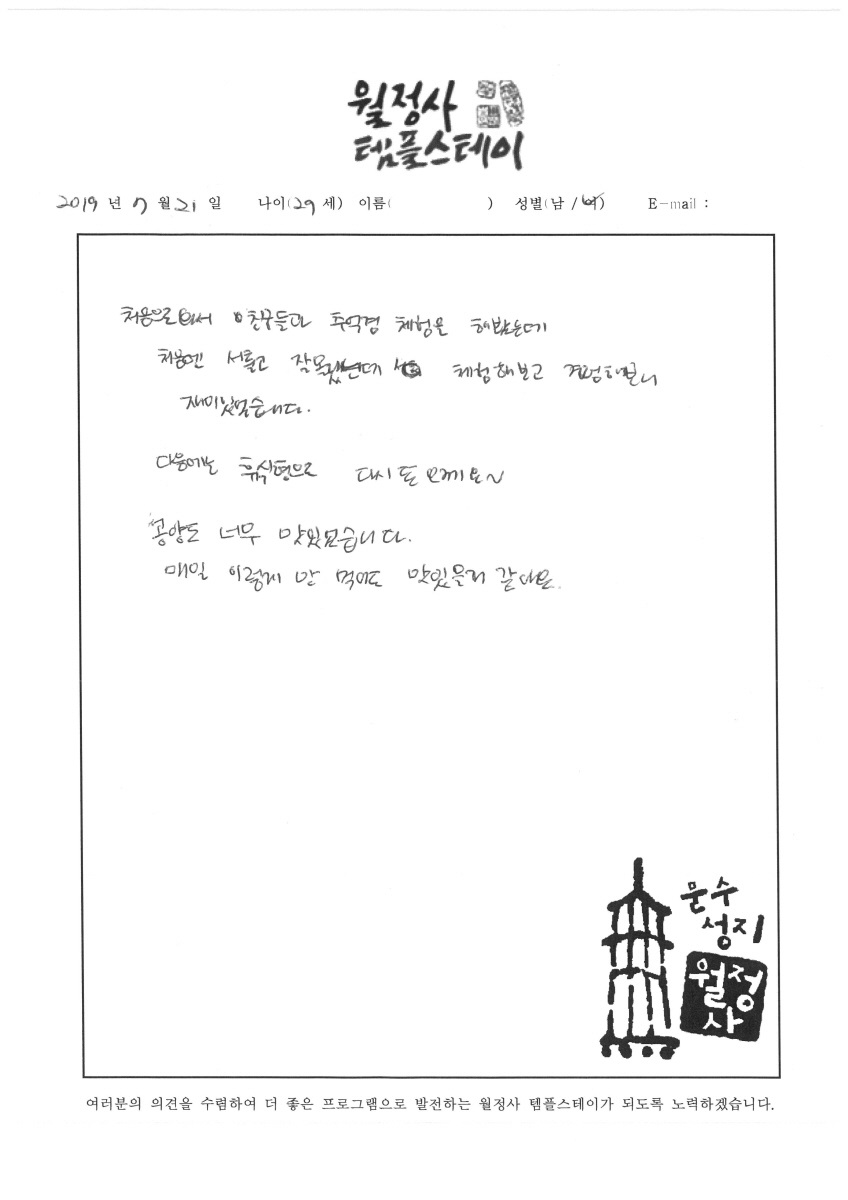 월정사
템플스테이
2019 년 7 월 21 일 나이(29 세) 이름( ) 성별(남 / 여) E-mail :
처음으로 와서 친구들과 추억겸 체험을 해봤는데
처음엔 서툴고 잘못했는데 체험해보고 경험해보니
재미있었습니다.
다음에는 휴식형으로 다시 또 오께요~
공양도 너무 맛있었습니다.
매일 이렇게 만 먹어도 맛있을거 같아요.
문수
성지
월정
사
여러분의 의견을 수렴하여 더 좋은 프로그램으로 발전하는 월정사 템플스테이가 되도록 노력하겠습니다.